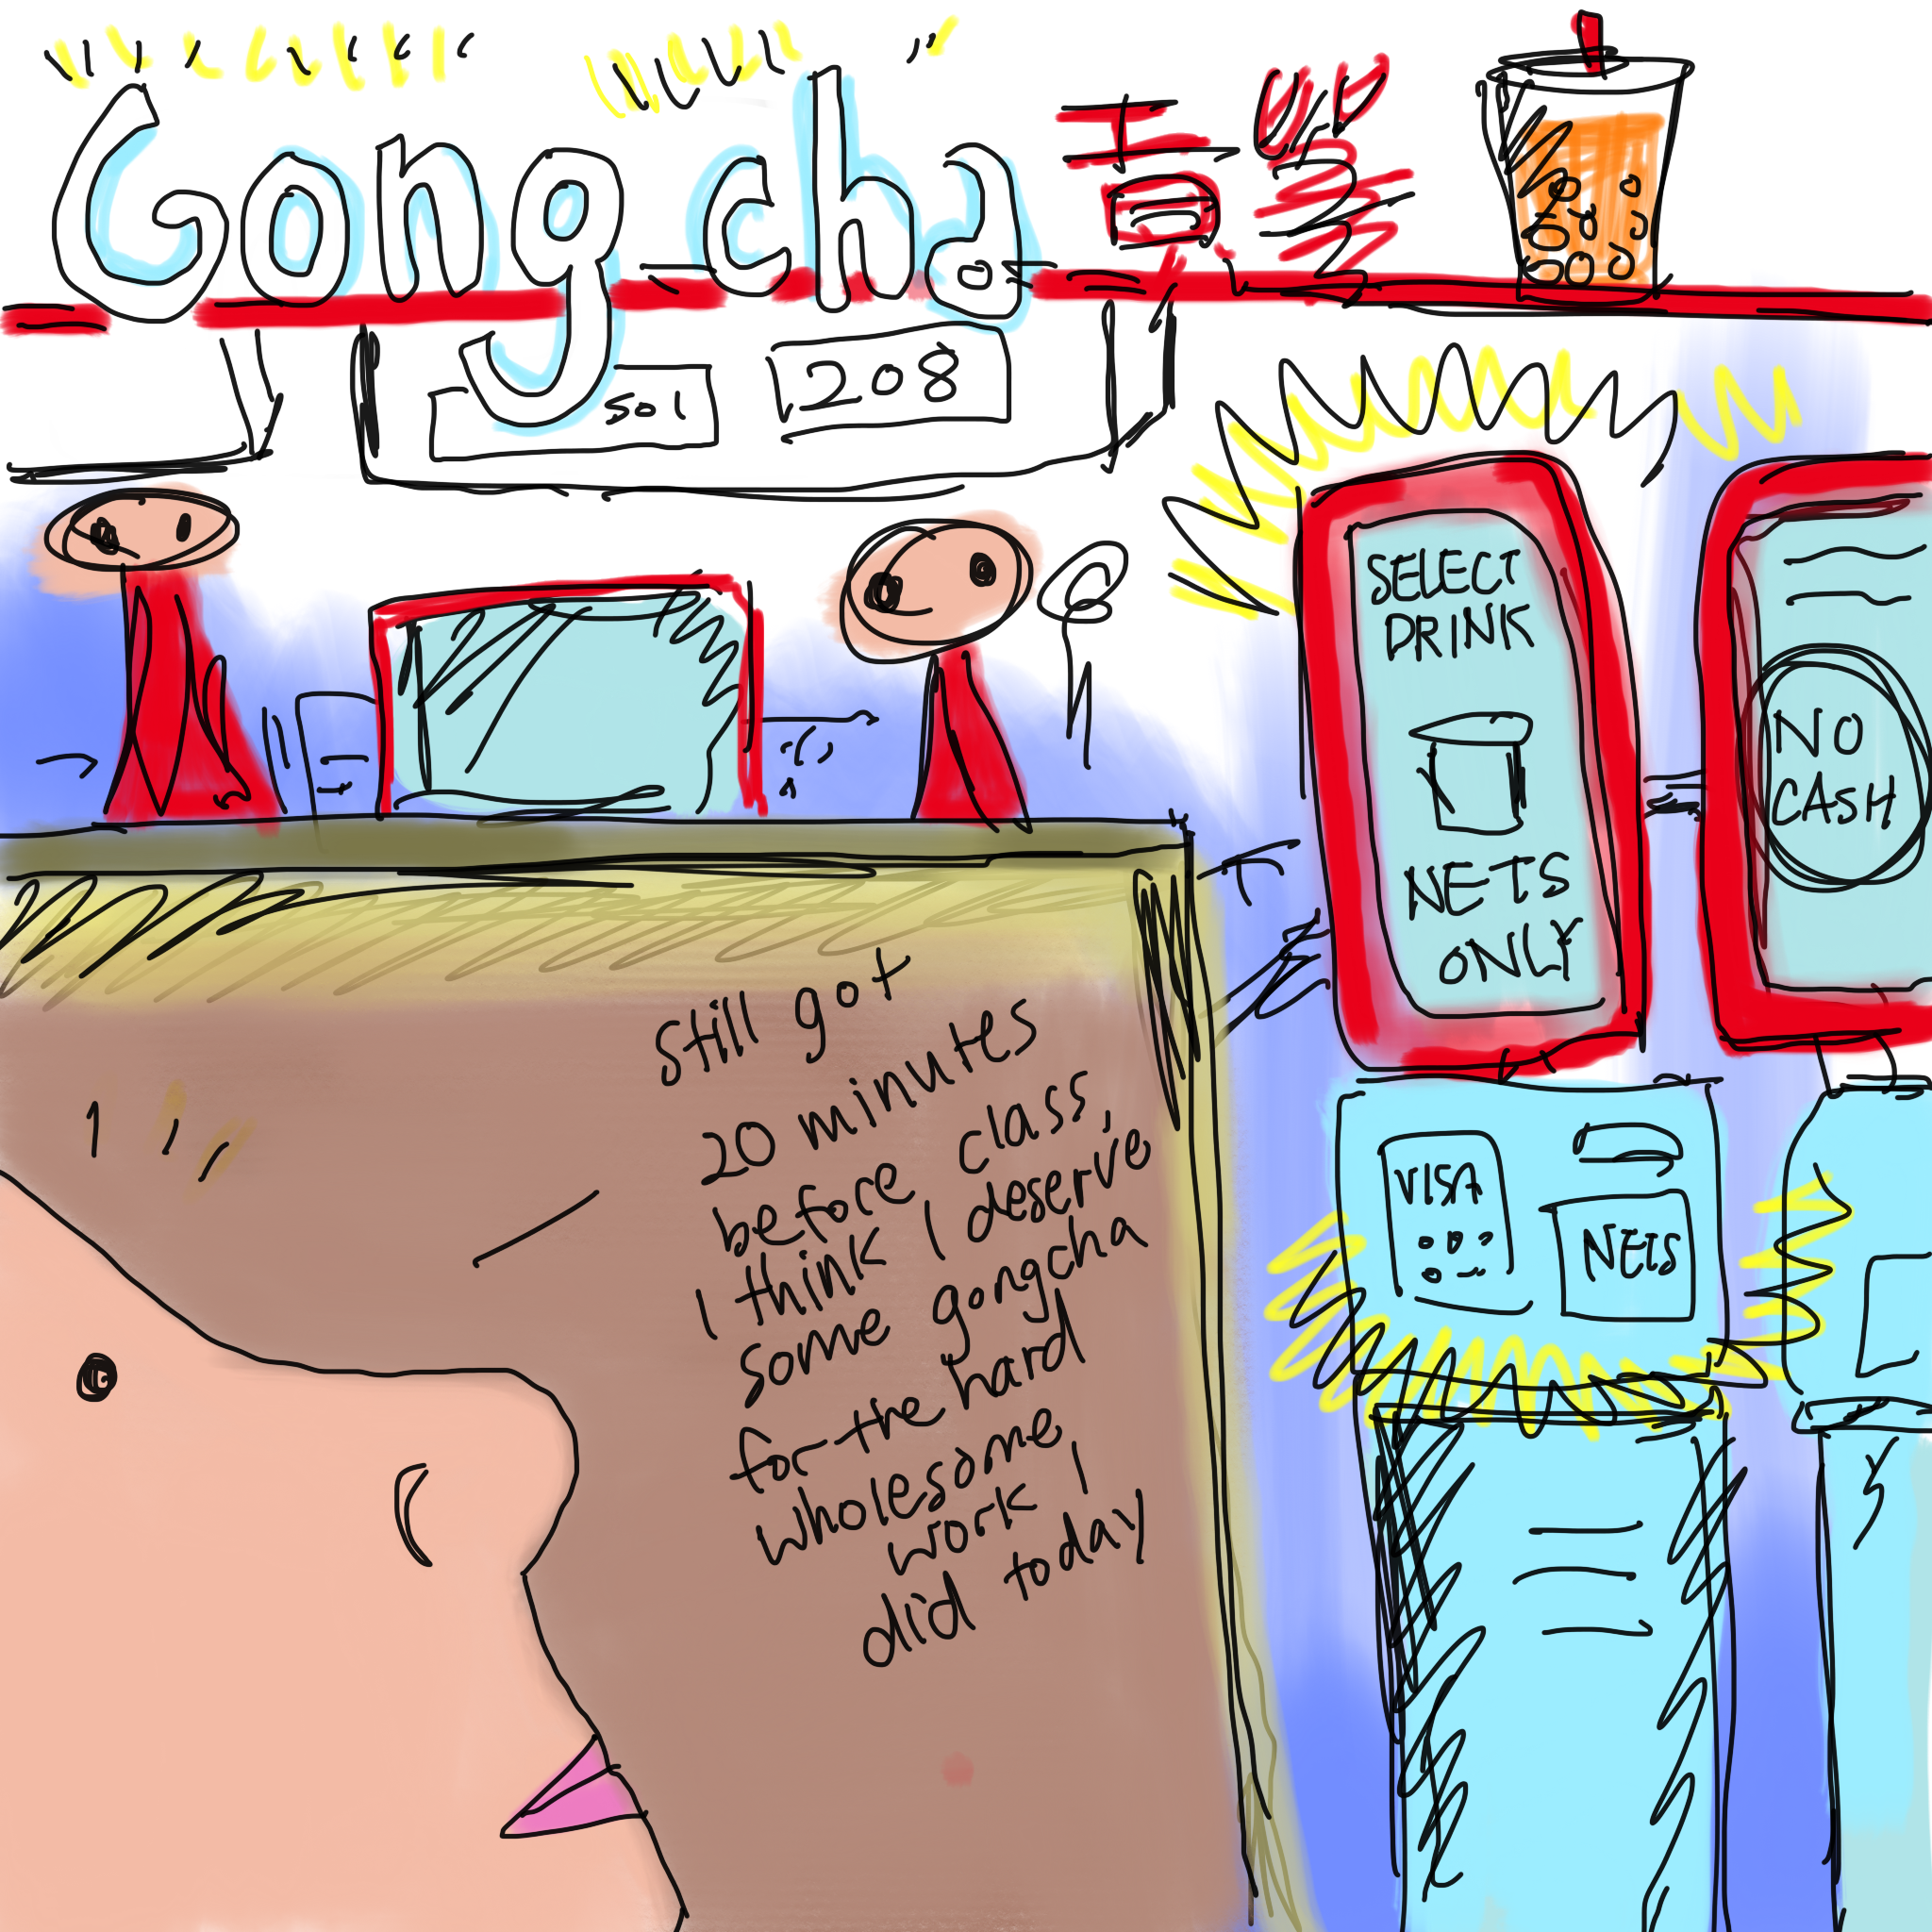 Gong cha 貢
501
208
SELECT
DRINK
NETS
ONLY
NO
CASH
still got
20 minutes
before class,
I think I deserve
some gongcha
for the hard
wholesome
work I
did today
VISA
NETS